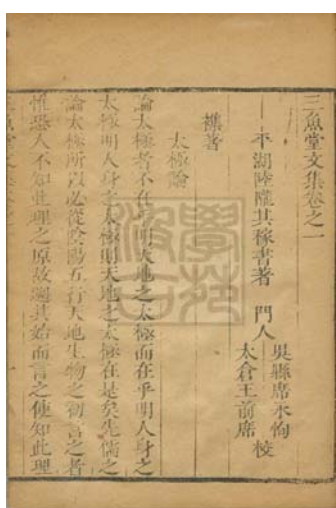 三魚堂文集卷之一
平湖陸隴其稼書著
門人
吳縣席永恂
太倉王前席
校
襍著
太極論
論太極者不在乎明天地之太極而在乎明人身之
太極明人身之太極則天地之太極在是矣先儒之
論太極所以必從陰陽五行天地生物之初言之者
惟恐人不知此理之原故遡其始而言之使知此理